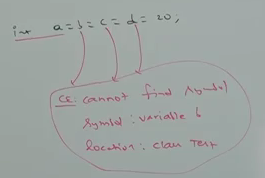 int a=b=c=d=20;
CE: cannot find symbol
symbol: variable b
location: class Test